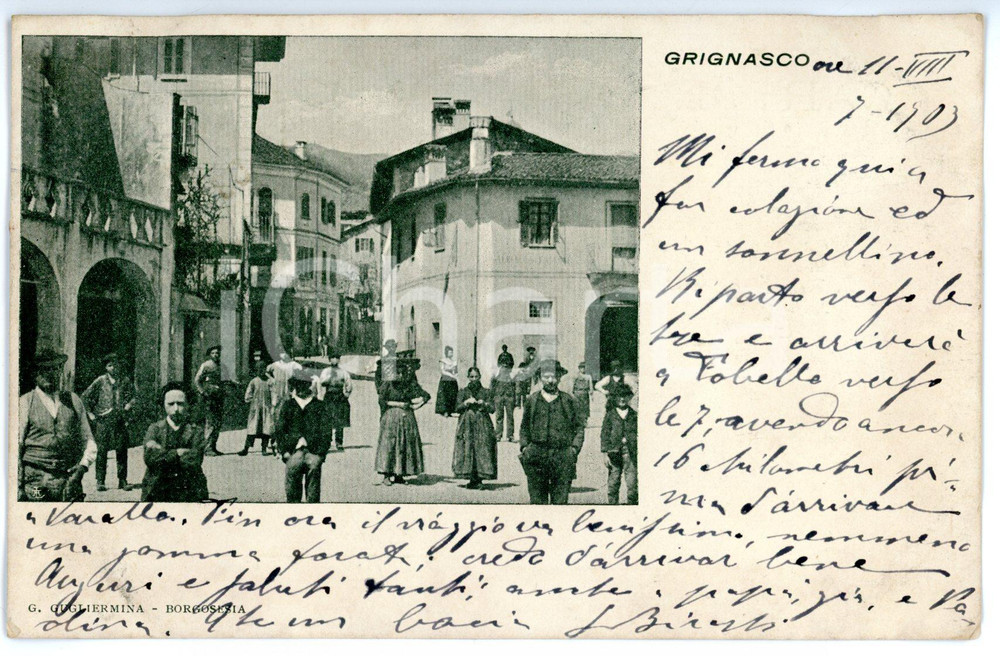 GRIGNASCO ore 11-VIII
7-1903
Mi fermo qui a
far colazione ed
un sonnellino.
Riparto verso le
tre e arriverò
a Fobello verso
le 7, avendo ancora
16 chilometri pri-
ma d'arrivare
a Varallo. Fin ora il viaggio va benissimo, nemmeno
una gomma forata; credo d'arrivar bene
Auguri e saluti tanti; anche a papà,
G. GUGLIERMINA - BORGOSESIA
un bacio
iCharta